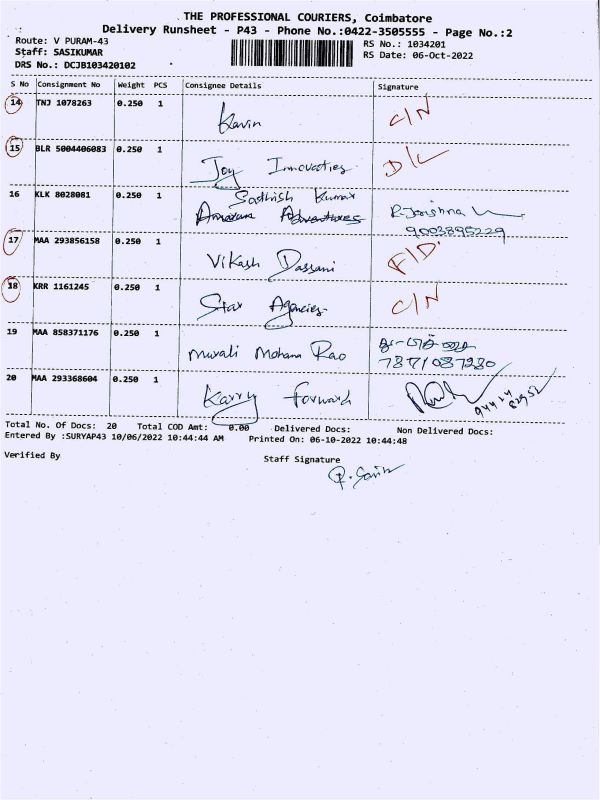 THE PROFESSIONAL COURIERS, Coimbatore
Delivery Runsheet - P43 - Phone No.:0422-3505555 - Page No.:2
Route: V PURAM-43
RS No.: 1034201
Staff: SASIKUMAR
RS Date: 06-Oct-2022
DRS No.: DCJB103420102
S No Consignment No Weight PCS Consignee Details Signature
14 TNJ 1078263 0.250 1 Kavin C/N
15 BLR 5004406083 0.250 1 Joy Innovatives D/L
Sathish Kumar
16 KLK 8028081 0.250 1 Adventures R. Krishna
9003895229
17 MAA 293856158 0.250 1 Vikash Dassani F/D.
18 KRR 1161245 0.250 1 Star Agencies C/N
19 MAA 858371176 0.250 1 Murali Mohana Rao
7871087280
20 MAA 293368604 0.250 1 Karry Forward
94424
82952
Total No. Of Docs: 20 Total COD Amt: 0.00 Delivered Docs: Non Delivered Docs:
Entered By :SURYAP43 10/06/2022 10:44:44 AM Printed On: 06-10-2022 10:44:48
Verified By Staff Signature